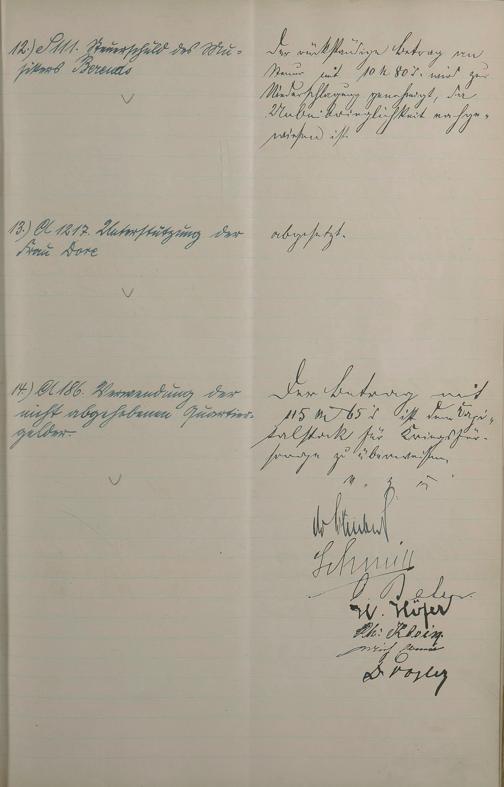 12.) S 111. Steuerschuld des Mu-
sikers Berends
Der rückständige Betrag an
Steuer mit 10 M 80 S. wird zur
Niederschlagung genehmigt, da
Unbeibringlichkeit nachge-
wiesen ist.
13.) A 1217. Unterstützung der
Frau Dore
abgesetzt.
14.) A 186. Verwendung der
nicht abgehobenen Quartier-
gelder.
Der Betrag mit
115 M 65 S ist dem Kapi-
talstock für Kriegsfür-
sorge zu überweisen.
v. g. u.
Schmitt
H. Höfer
Ph: Klein
D. Vogler